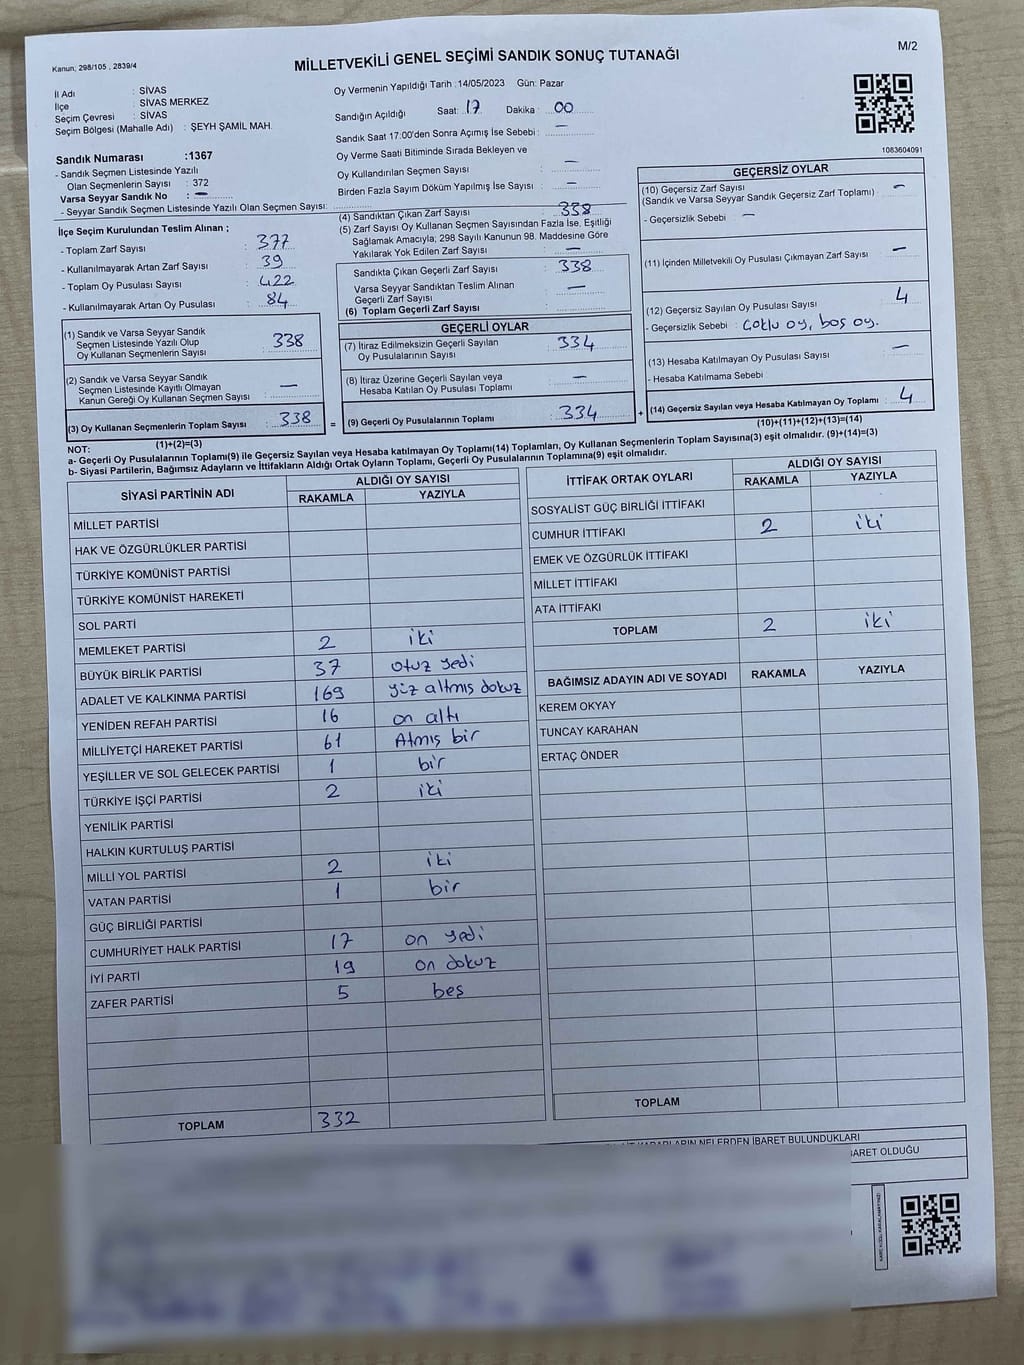 Kanun; 298/105 , 2839/4
MİLLETVEKİLİ GENEL SEÇİMİ SANDIK SONUÇ TUTANAĞI
M/2
İl Adı : SİVAS
İlçe : SİVAS MERKEZ
Seçim Çevresi : SİVAS
Seçim Bölgesi (Mahalle Adı) : ŞEYH ŞAMİL MAH.
Sandık Numarası :1367
- Sandık Seçmen Listesinde Yazılı
Olan Seçmenlerin Sayısı : 372
Varsa Seyyar Sandık No : —
- Seyyar Sandık Seçmen Listesinde Yazılı Olan Seçmen Sayısı:
Oy Vermenin Yapıldığı Tarih :14/05/2023 Gün: Pazar
Sandığın Açıldığı Saat: 17 Dakika : 00
Sandık Saat 17:00'den Sonra Açımış İse Sebebi : —
Oy Verme Saati Bitiminde Sırada Bekleyen ve
Oy Kullandırılan Seçmen Sayısı : —
Birden Fazla Sayım Döküm Yapılmış İse Sayısı : —
1083604091
İlçe Seçim Kurulundan Teslim Alınan ;
- Toplam Zarf Sayısı : 377
- Kullanılmayarak Artan Zarf Sayısı : 39
- Toplam Oy Pusulası Sayısı : 422
- Kullanılmayarak Artan Oy Pusulası : 84
(1) Sandık ve Varsa Seyyar Sandık
Seçmen Listesinde Yazılı Olup
Oy Kullanan Seçmenlerin Sayısı : 338
(2) Sandık ve Varsa Seyyar Sandık
Seçmen Listesinde Kayıtlı Olmayan
Kanun Gereği Oy Kullanan Seçmen Sayısı : —
(3) Oy Kullanan Seçmenlerin Toplam Sayısı : 338
(1)+(2)=(3)
(4) Sandıktan Çıkan Zarf Sayısı : 338
(5) Zarf Sayısı Oy Kullanan Seçmen Sayısından Fazla İse, Eşitliği
Sağlamak Amacıyla; 298 Sayılı Kanunun 98. Maddesine Göre
Yakılarak Yok Edilen Zarf Sayısı : —
Sandıkta Çıkan Geçerli Zarf Sayısı : 338
Varsa Seyyar Sandıktan Teslim Alınan
Geçerli Zarf Sayısı : —
(6) Toplam Geçerli Zarf Sayısı :
GEÇERLİ OYLAR
(7) İtiraz Edilmeksizin Geçerli Sayılan
Oy Pusulalarının Sayısı : 334
(8) İtiraz Üzerine Geçerli Sayılan veya
Hesaba Katılan Oy Pusulası Toplamı : —
= (9) Geçerli Oy Pusulalarının Toplamı : 334
GEÇERSİZ OYLAR
(10) Geçersiz Zarf Sayısı : —
(Sandık ve Varsa Seyyar Sandık Geçersiz Zarf Toplamı)
- Geçersizlik Sebebi : —
(11) İçinden Milletvekili Oy Pusulası Çıkmayan Zarf Sayısı : —
(12) Geçersiz Sayılan Oy Pusulası Sayısı : 4
- Geçersizlik Sebebi : Çoklu oy, boş oy.
(13) Hesaba Katılmayan Oy Pusulası Sayısı : —
- Hesaba Katılmama Sebebi :
+ (14) Geçersiz Sayılan veya Hesaba Katılmayan Oy Toplamı : 4
(10)+(11)+(12)+(13)=(14)
NOT:
a- Geçerli Oy Pusulalarının Toplamı(9) ile Geçersiz Sayılan veya Hesaba katılmayan Oy Toplamı(14) Toplamları, Oy Kullanan Seçmenlerin Toplam Sayısına(3) eşit olmalıdır. (9)+(14)=(3)
b- Siyasi Partilerin, Bağımsız Adayların ve İttifakların Aldığı Ortak Oyların Toplamı, Geçerli Oy Pusulalarının Toplamına(9) eşit olmalıdır.
SİYASİ PARTİNİN ADI ALDIĞI OY SAYISI
RAKAMLA YAZIYLA
MİLLET PARTİSİ
HAK VE ÖZGÜRLÜKLER PARTİSİ
TÜRKİYE KOMÜNİST PARTİSİ
TÜRKİYE KOMÜNİST HAREKETİ
SOL PARTİ
MEMLEKET PARTİSİ 2 iki
BÜYÜK BİRLİK PARTİSİ 37 otuz yedi
ADALET VE KALKINMA PARTİSİ 169 yüz altmış dokuz
YENİDEN REFAH PARTİSİ 16 on altı
MİLLİYETÇİ HAREKET PARTİSİ 61 Atmış bir
YEŞİLLER VE SOL GELECEK PARTİSİ 1 bir
TÜRKİYE İŞÇİ PARTİSİ 2 iki
YENİLİK PARTİSİ
HALKIN KURTULUŞ PARTİSİ
MİLLİ YOL PARTİSİ 2 iki
VATAN PARTİSİ 1 bir
GÜÇ BİRLİĞİ PARTİSİ
CUMHURİYET HALK PARTİSİ 17 on yedi
İYİ PARTİ 19 on dokuz
ZAFER PARTİSİ 5 beş
TOPLAM 332
İTTİFAK ORTAK OYLARI ALDIĞI OY SAYISI
RAKAMLA YAZIYLA
SOSYALİST GÜÇ BİRLİĞİ İTTİFAKI
CUMHUR İTTİFAKI 2 iki
EMEK VE ÖZGÜRLÜK İTTİFAKI
MİLLET İTTİFAKI
ATA İTTİFAKI
TOPLAM 2 iki
BAĞIMSIZ ADAYIN ADI VE SOYADI RAKAMLA YAZIYLA
KEREM OKYAY
TUNCAY KARAHAN
ERTAÇ ÖNDER
TOPLAM
KARARLARIN NELERDEN İBARET BULUNDUKLARI
İBARET OLDUĞU